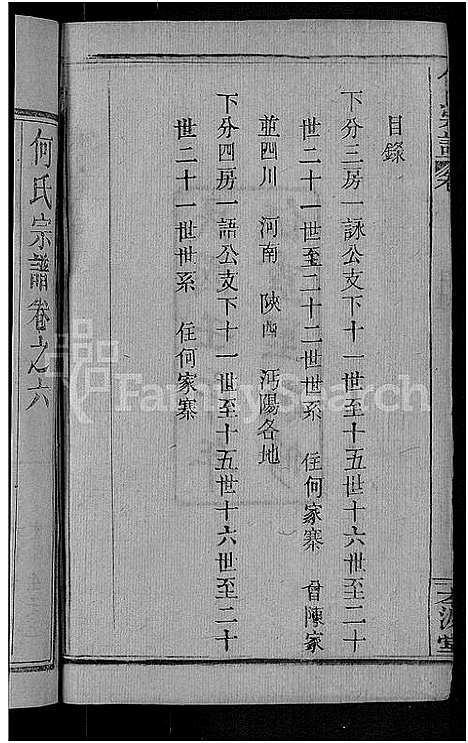 目錄
下分三房一詠公支下十一世至十五世十六世至二十
世二十一世至二十二世世系 住何家寨 曾陳家
並四川 河南 陝西 沔陽各地
下分四房一語公支下十一世至十五世十六世至二十
世二十一世世系 住何家寨
何氏宗譜卷之六
FamilySearch